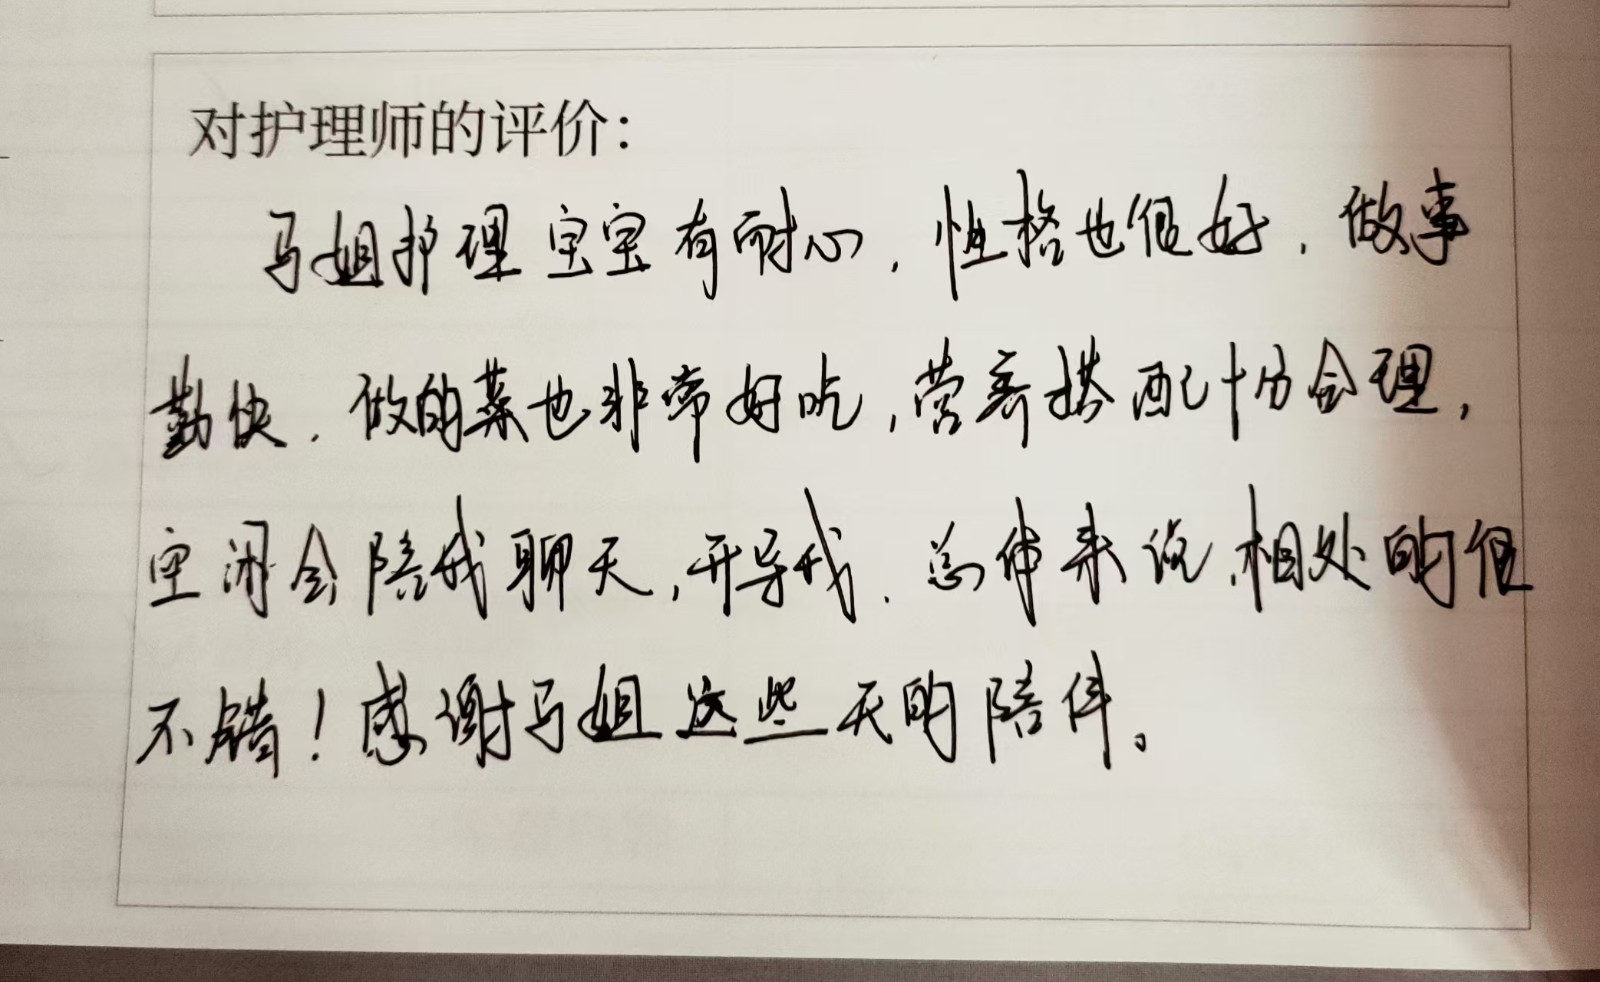 对护理师的评价：
马姐护理宝宝有耐心，性格也很好，做事
勤快，做的菜也非常好吃，营养搭配十分合理，
空闲会陪我聊天，开导我．总体来说，相处的很
不错！感谢马姐这些天的陪伴。